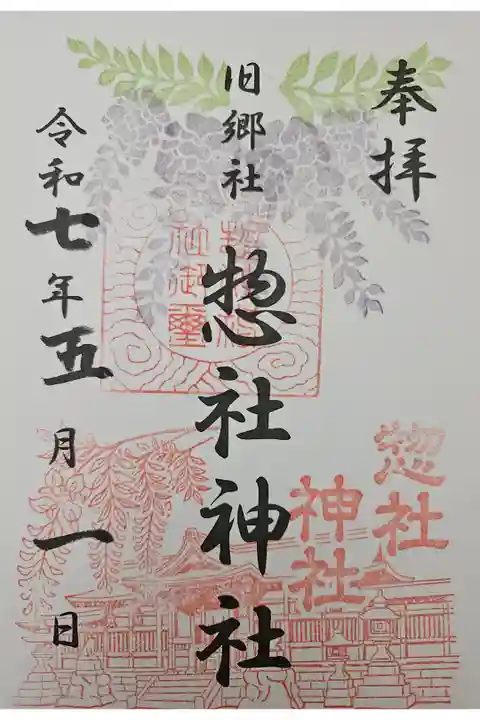 奉拝
旧郷社
惣社神社
惣社
神社
令和七年五月一日